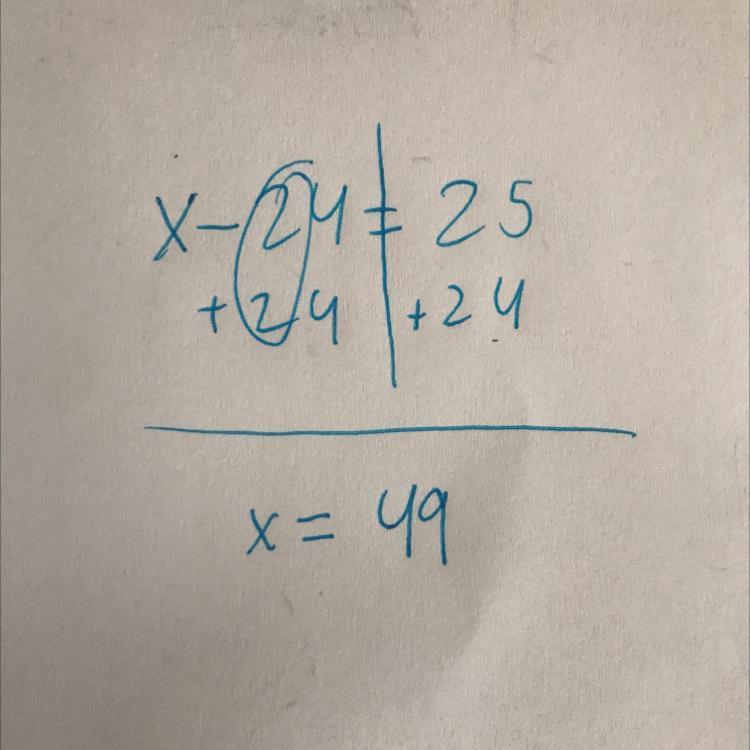 x - 24 = 25
+24 +24
x = 49